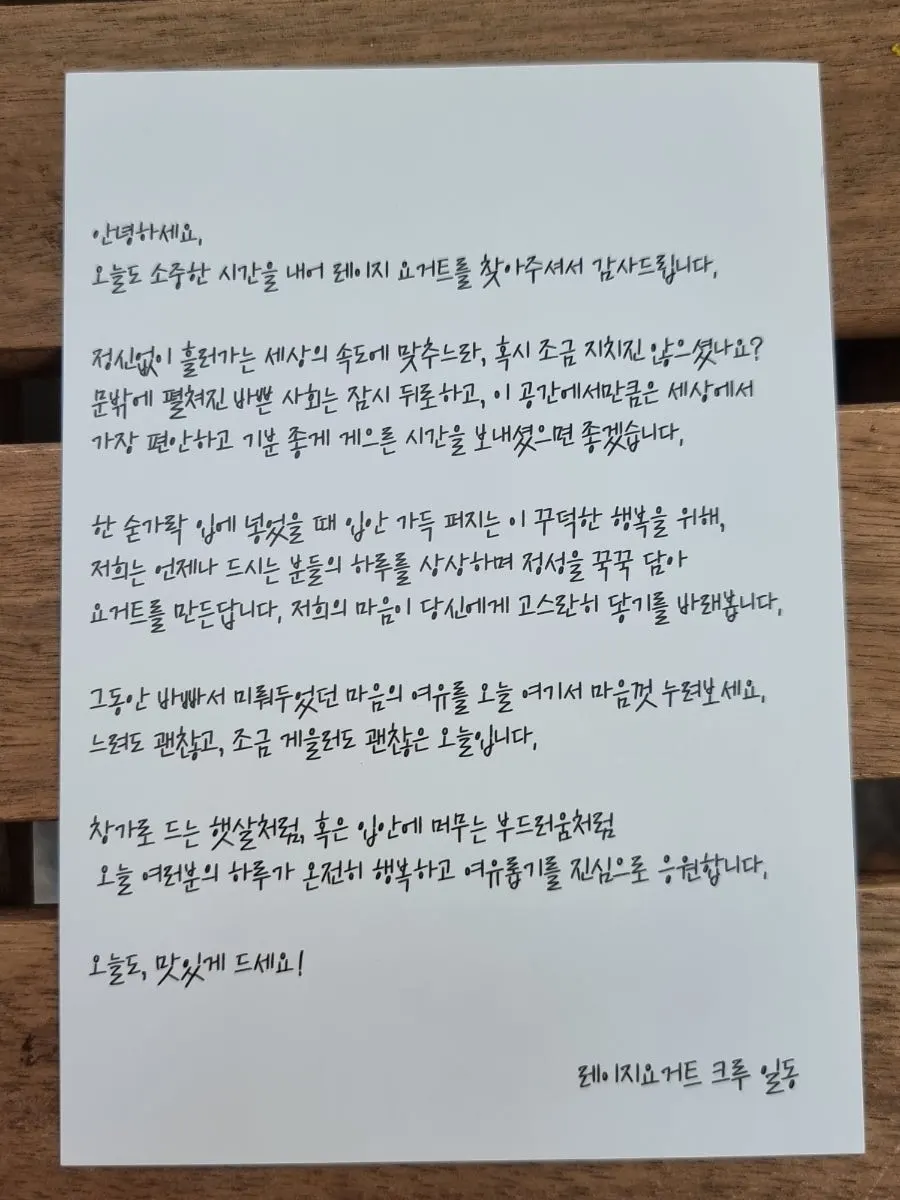 안녕하세요,
오늘도 소중한 시간을 내어 레이지 요거트를 찾아주셔서 감사드립니다.
정신없이 흘러가는 세상의 속도에 맞추느라, 혹시 조금 지치진 않으셨나요?
문밖에 펼쳐진 바쁜 사회는 잠시 뒤로하고, 이 공간에서만큼은 세상에서
가장 편안하고 기분 좋게 게으른 시간을 보내셨으면 좋겠습니다.
한 숟가락 입에 넣었을 때 입안 가득 퍼지는 이 꾸덕한 행복을 위해,
저희는 언제나 드시는 분들의 하루를 상상하며 정성을 꾹꾹 담아
요거트를 만든답니다. 저희의 마음이 당신에게 고스란히 닿기를 바래봅니다.
그동안 바빠서 미뤄두었던 마음의 여유를 오늘 여기서 마음껏 누려보세요.
느려도 괜찮고, 조금 게을러도 괜찮은 오늘입니다.
창가로 드는 햇살처럼, 혹은 입안에 머무는 부드러움처럼
오늘 여러분의 하루가 온전히 행복하고 여유롭기를 진심으로 응원합니다.
오늘도, 맛있게 드세요!
레이지요거트 크루 일동